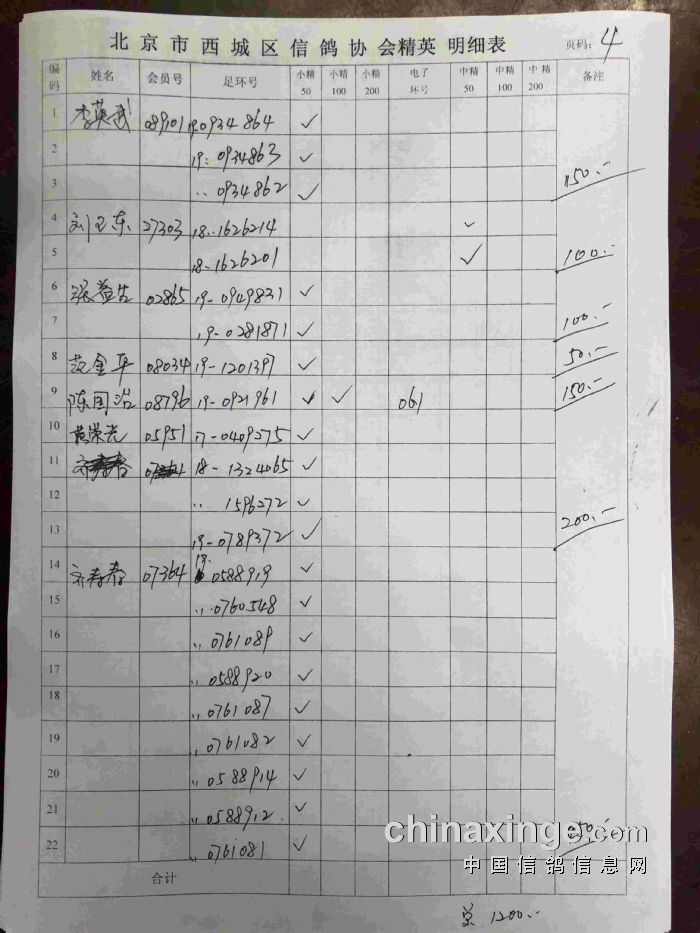 北京市西城区信鸽协会精英 明细表
页码：4
编码 姓名 会员号 足环号 小精50 小精100 小精200 电子环号 中精50 中精100 中精200 备注
1 李英武 089101 19.0934864 ✓
2 19：0934863 ✓
3 ‥0934862 ✓ 150.-
4 刘玉东 27303 18..1626214 ✓
5 18-1626201 ✓ 100.-
6 张益生 02865 19-0949831 ✓
7 19-0281871 ✓ 100.-
8 范金平 08034 19-1201397 ✓ 50.-
9 陈国治 08796 19-0921961 ✓ ✓ 061 150.-
10 黄荣光 05951 17-0409275 ✓
11 18-1324065 ✓
12 ‥ 1596272 ✓
13 19-0789372 ✓ 200.-
14 齐春春 07364 19 0588919 ✓
15 ‥0760548 ✓
16 ‥0761089 ✓
17 ‥0588920 ✓
18 ‥0761087 ✓
19 ‥0761082 ✓
20 ‥0588914 ✓
21 ‥0588912. ✓
22 ‥0761081 ✓
合计
1200.-
chinaxinge.com
中国信鸽信息网